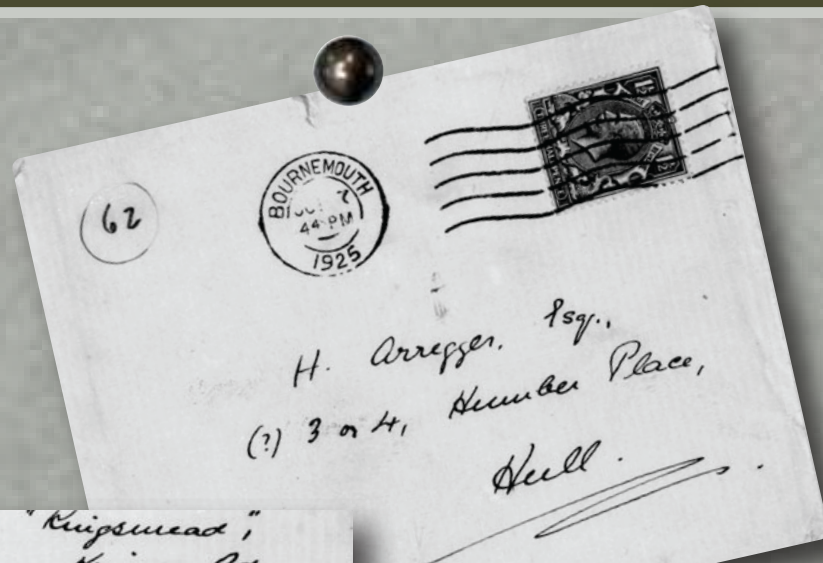 62
BOURNEMOUTH
PM
1925
H. Arregger, Esq.,
(?) 3 or 4, Humber Place,
Hull.
"Kingsmead",